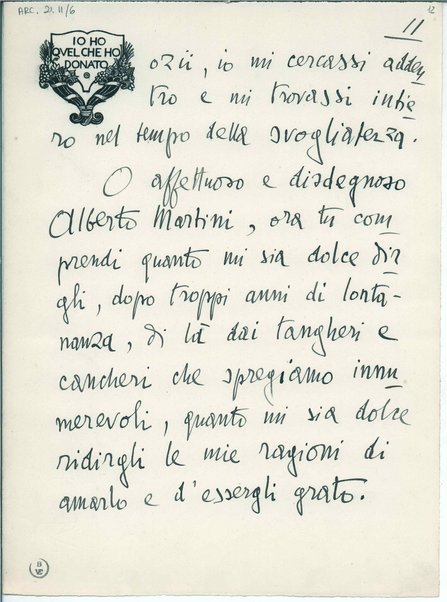 ARC. 21. 11/6
12
11
IO HO
QVEL CHE HO
DONATO
ozii, io mi cercassi adden
tro e mi trovassi intie
ro nel tempo della svogliatezza.
O affettuoso e disdegnoso
Alberto Martini, ora tu com
prendi quanto mi sia dolce dir
gli, dopo troppi anni di lonta-
nanza, di là dai tangheri e
cancheri che spregiamo innu
merevoli, quanto mi sia dolce
ridirgli le mie ragioni di
amarlo e d'essergli grato.